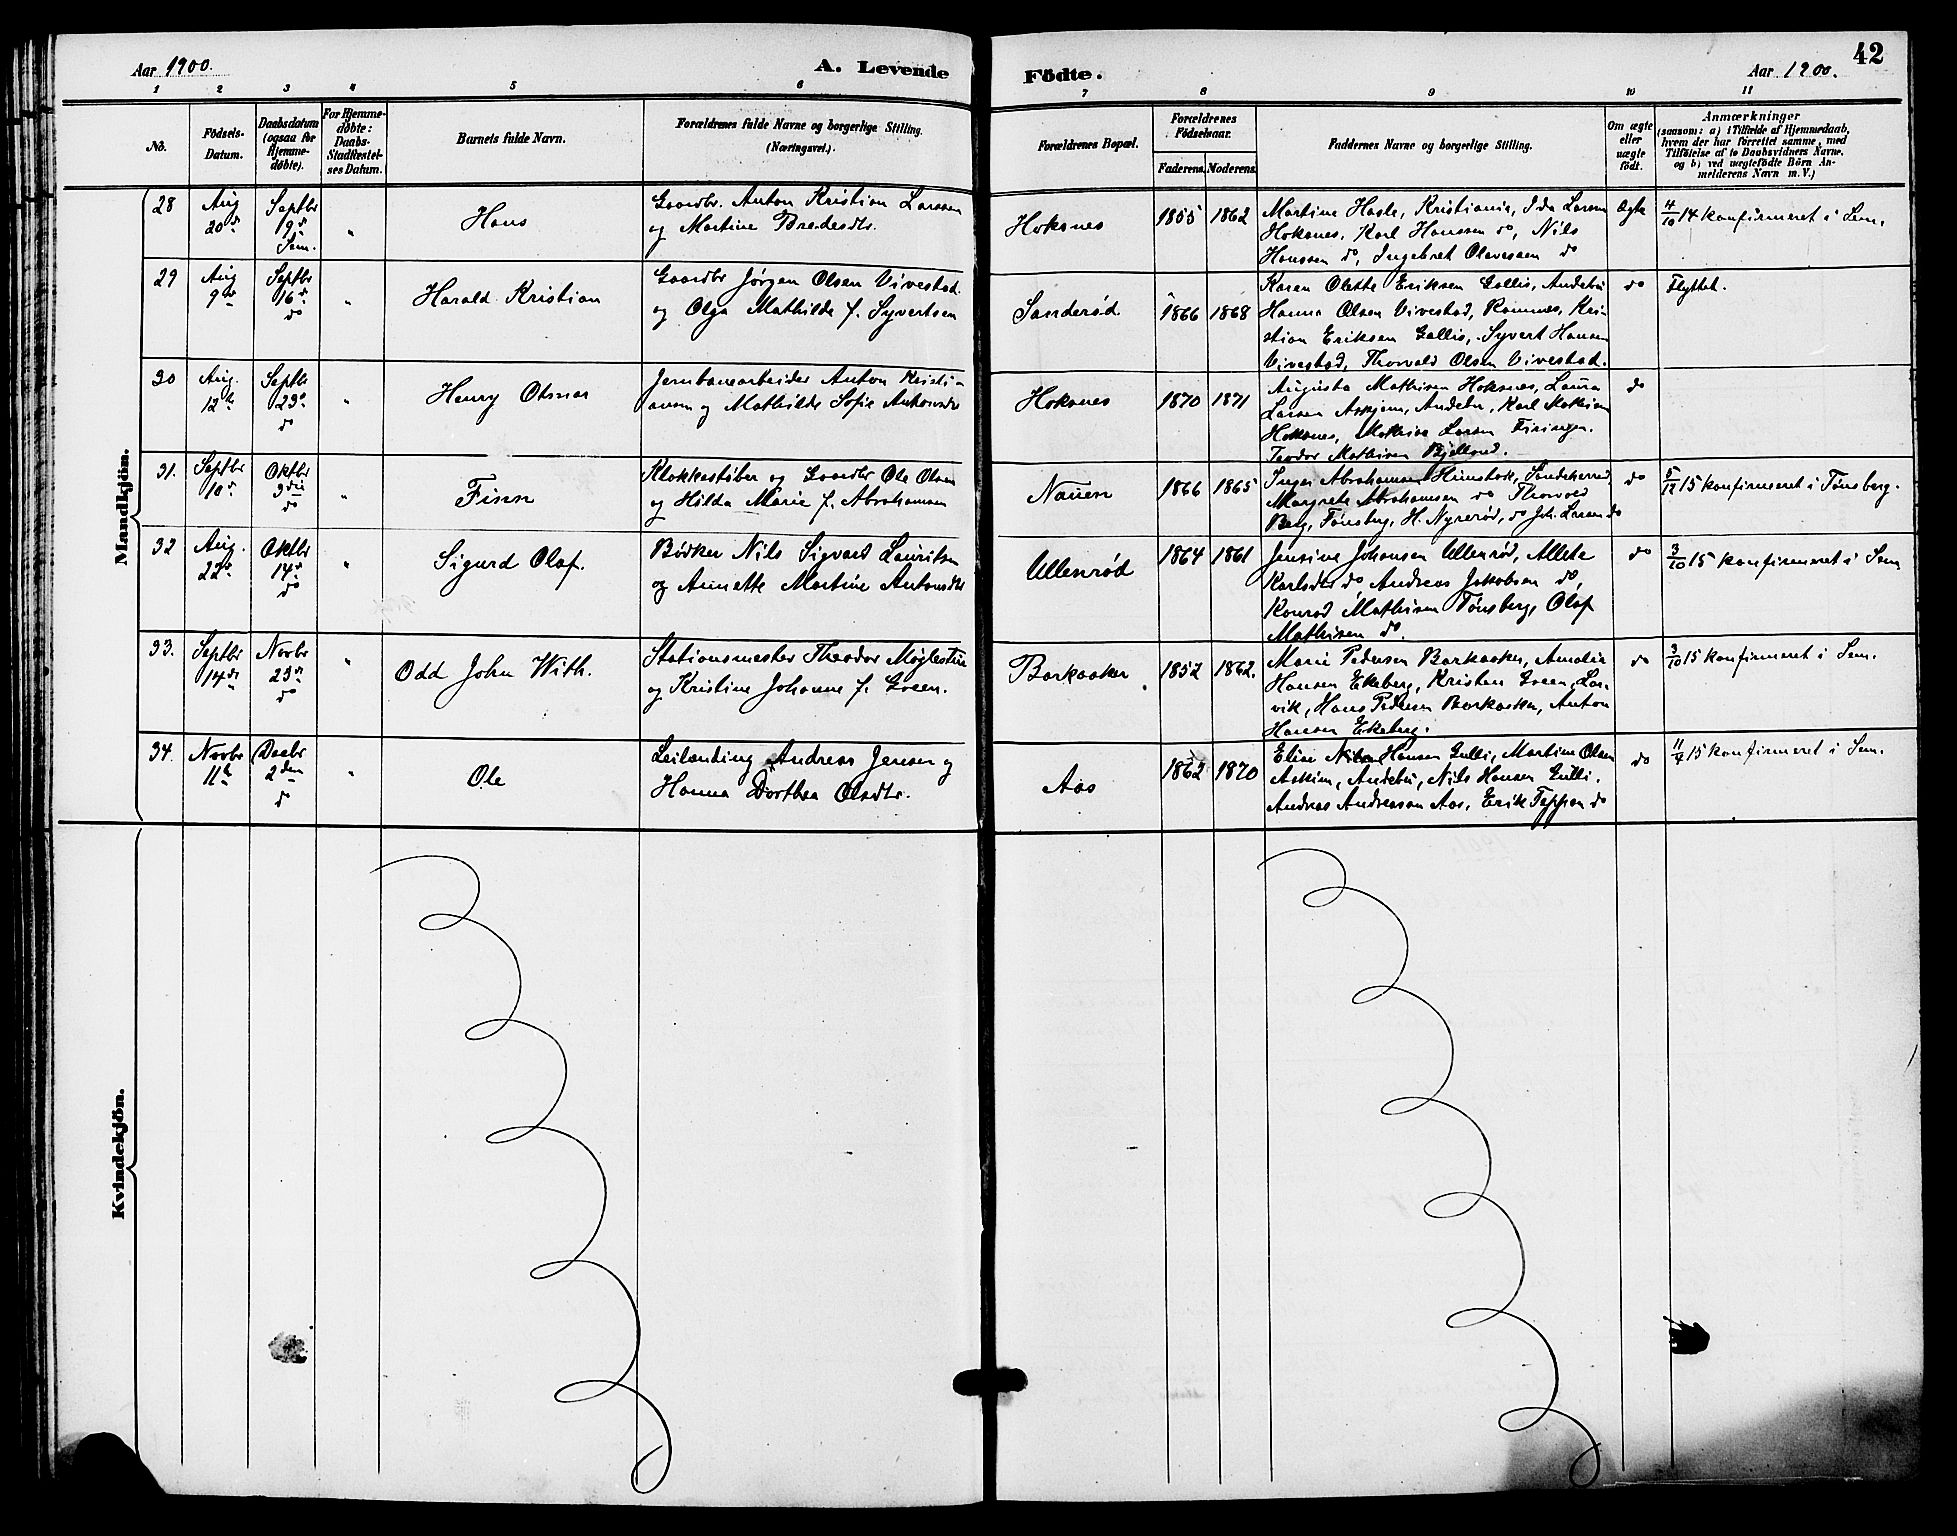 Aar 1900.
A. Levende
Födte.
Aar 1900.
42
1 2 3 4 5 6 7 8 9 10 11
No.
Födsels-
Datum.
Daabsdatum
(ogsaa för
Hjemme-
döbte).
For Hjemme-
döbte:
Daabs-
Stadfæstel-
ses Datum.
Barnets fulde Navn.
Forældrenes fulde Navne og borgerlige Stilling.
(Næringsvei.)
Forældrenes Bopæl.
Forældrenes
Födselsaar.
Faderens. Moderens.
Faddernes Navne og borgerlige Stilling.
Om ægte
eller
uægte
födt.
Anmærkninger
(saasom: a) i Tilfælde af Hjemmedaab,
hvem der har forrettet samme, med
Tilföielse af to Daabsvidners Navne.
og b) ved uægtefödte Börn An-
melderens Navn m. V.)
Mandkjön.
28
Aug
20d
Septbr
9d
Sem.
"
Hans
Gaardbr. Anton Kristian Larsen
og Martine Bredesdtr.
Hoksnes
1855
1862
Martine Hasle, Kristiania, Ida Larsen
Hoksnes, Karl Hanssen do, Nils
Hanssen do, Ingebret Olavesen do
Ægte
4/10 14 konfirmeret i Sem.
29
Aug
9de
Septbr
16d
do
"
Harald Kristian
Gaardbr Jørgen Olsen Vivestad
og Olga Mathilde f. Syvertsen
Sanderød
1866
1868
Karen Olette Eriksen Gallis, Andebu
Hanna Olsen Vivestad, Ramnes, Kri-
stian Eriksen Gallis, Syvert Hansen
Vivestad, Thorvald Olsen Vivestad.
do
Flyttet.
30
Aug.
12te
Septbr
23d
do
"
Henry Otmar
Jernbanearbeider Anton Kristi-
ansen og Mathilde Sofie Antonsdtr
Hoksnes
1870
1871
Augusta Mathisen Hoksnes, Laura
Larsen Askjem, Andebu, Karl Mathisen
Hoksnes, Mathias Larsen
Teodor Mathisen
do
31.
Septbr
10d
Oktbr
3die
do
"
Finn
Klokkestøber og Gaardbr Ole Olsen
og Hilda Marie f. Abrahamsen
Nauen
1866
1865
Inger Abrahamsen Himstok, Sandeherred
Margrete Abrahamsen do Thorvald
Berg, Tønsberg, H. Nyrerød, do Joh. Larsen do
do
5/12 15 konfirmeret i Tønsberg.
32
Aug.
22d
Oktbr
14d
do
"
Sigurd Olaf.
Bødker Nils Sigvart Lauritsen
og Annette Martine Antonsdtr
Ullenrød
1864
1861
Jensine Johansen Ullenrød, Allete
Karlsdtr do Andreas Jakobsen do,
Konrad Mathisen Tønsberg, Olaf
Mathisen do.
do
3/10 15 konfirmeret i Sem
33.
Septbr
14de
Novbr
25d
do
"
Odd John With.
Stationsmester Theodor Møglestue
og Kristine Johanne f. Green.
Barkaaker
1852
1862.
Marie Pedersen Barkaaker, Amalie
Hansen Ekeberg, Kristen Green, Lar-
vik, Hans Pedersen Barkaaker, Anton
Hansen Ekeberg.
do
3/10 15 konfirmeret i Sem.
34.
Novbr
11te
Decbr
2den
do
"
Ole
Leilænding Andreas Jensen og
Hanna Dorthea Olsdtr.
Aas
1862
1870
Elise Hansen Gulli, Martine Olsen
Askim, Andebu, Nils Hansen Gulli.
Andreas Andreassen Aas, Erik Jeppsen do
do
11/4 15 konfirmeret i Sem.
Kvindekjön.